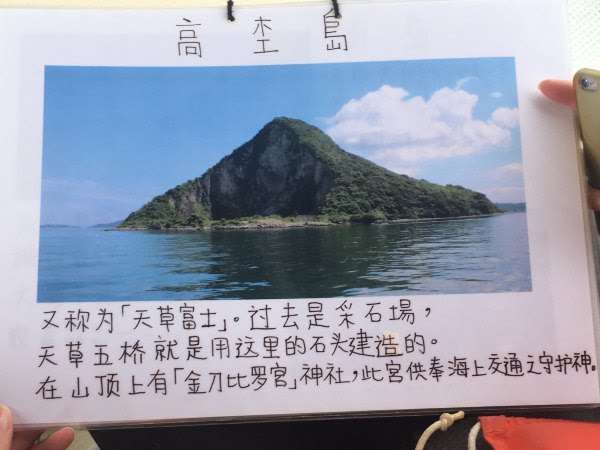 高杢島
又称为「天草富士」。过去是采石場，
天草五桥就是用这里的石头建造的。
在山顶上有「金刀比罗宫」神社，此宮供奉海上交通之守护神。